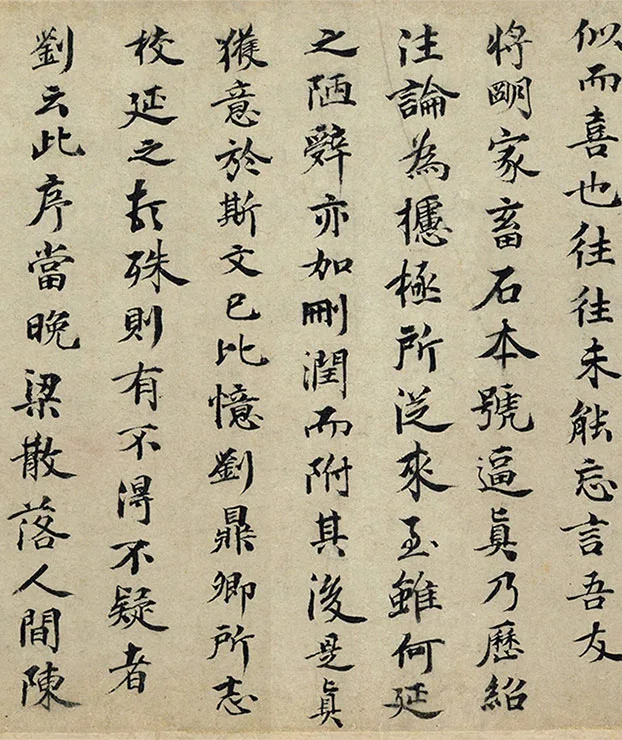 似而喜也往往未能忘言吾友
将明家畜石本號逼真乃歷紹
注論為攄極所從來至雖何延
之陋辭亦加刪潤而附其後是真
獲意於斯文已比憶劉鼎卿所志
校延之尤殊則有不得不疑者
劉云此序當晚梁散落人間陳